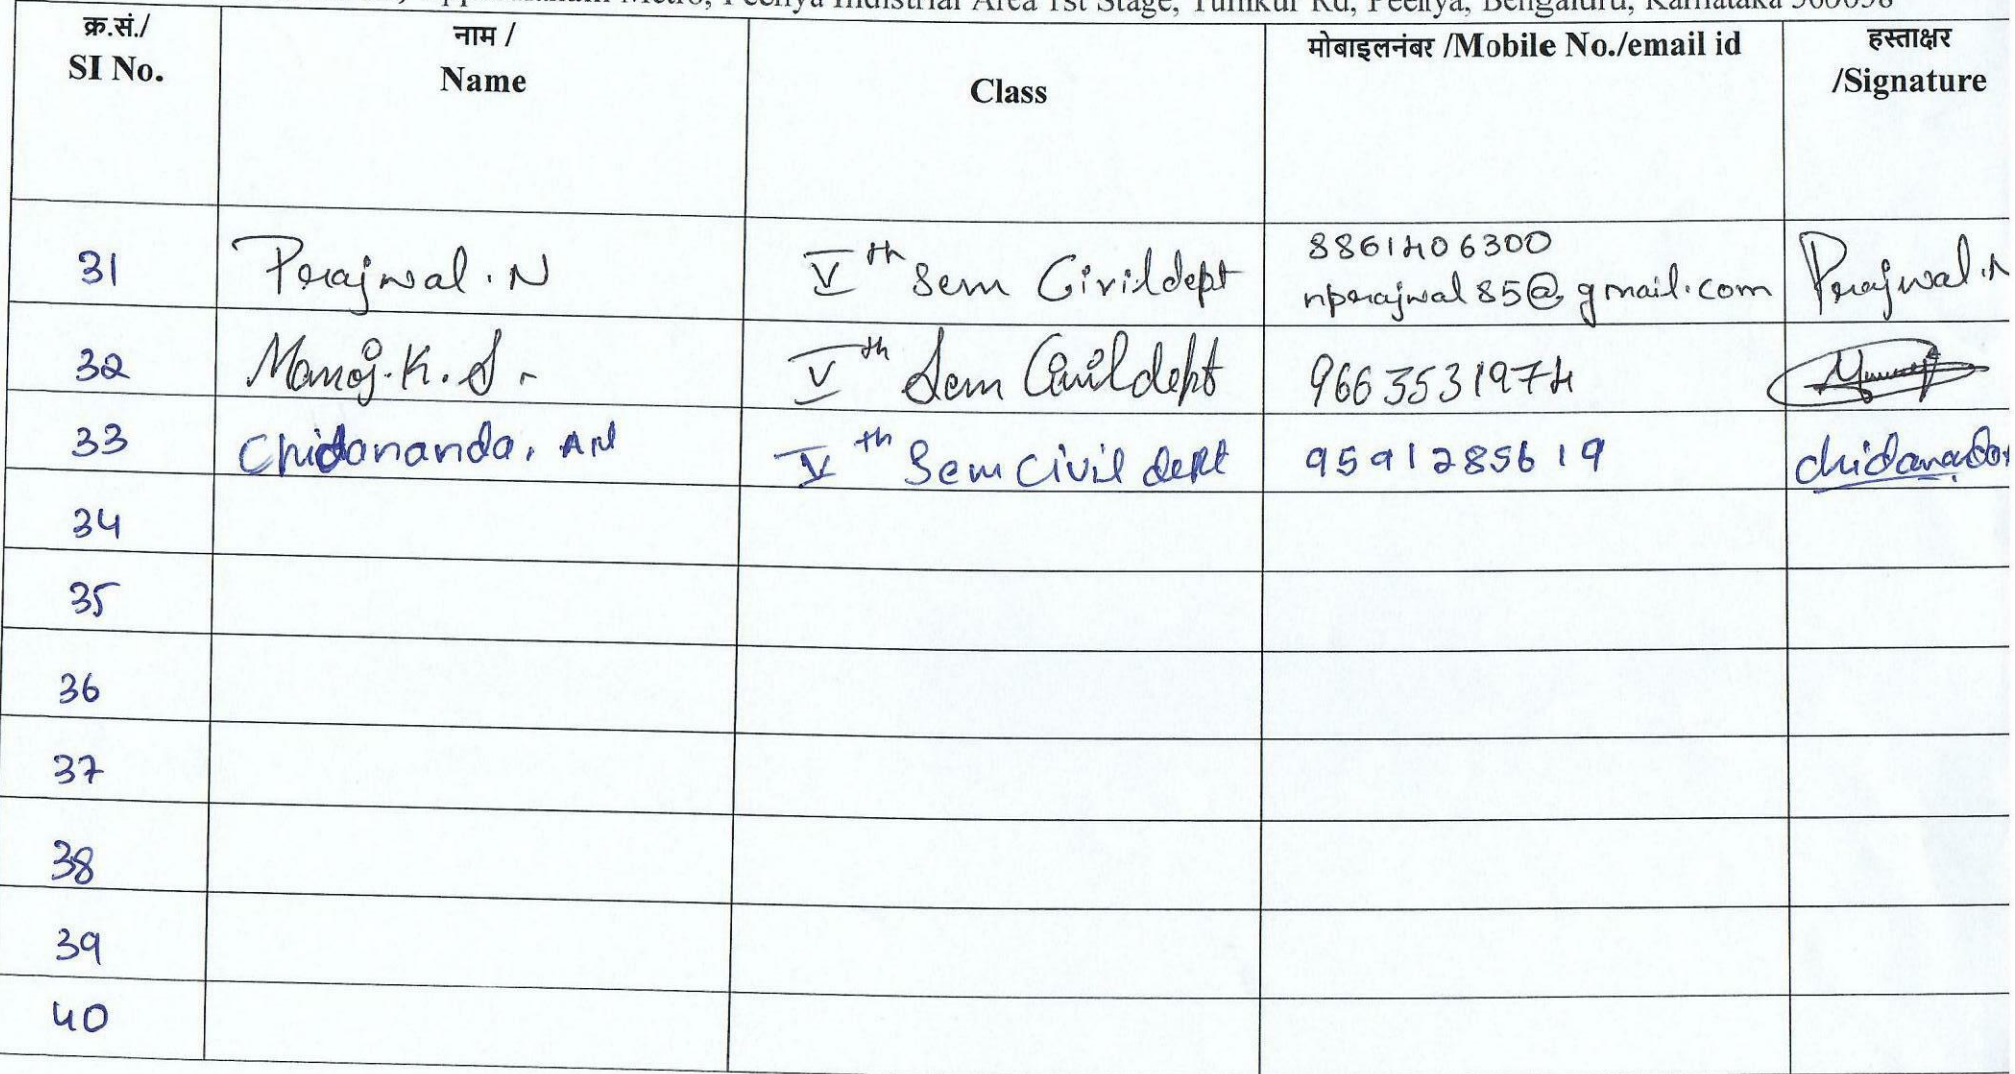 Metro, Peenya Indistrial Area 1st Stage, Tumkur Rd, Peenya, Bengaluru, Karnataka 560058
क्र.सं./ SI No.
नाम / Name
Class
मोबाइलनंबर /Mobile No./email id
हस्ताक्षर /Signature
31 Prajwal . N Vth Sem Civil dept 8861406300 Prajwal . N
nprajwal85@gmail.com
32 Manoj. K. S. Vth Sem Civil dept 9663531974
33 Chidananda. AN Vth Sem Civil dept 9591285619 chidananda
34
35
36
37
38
39
40